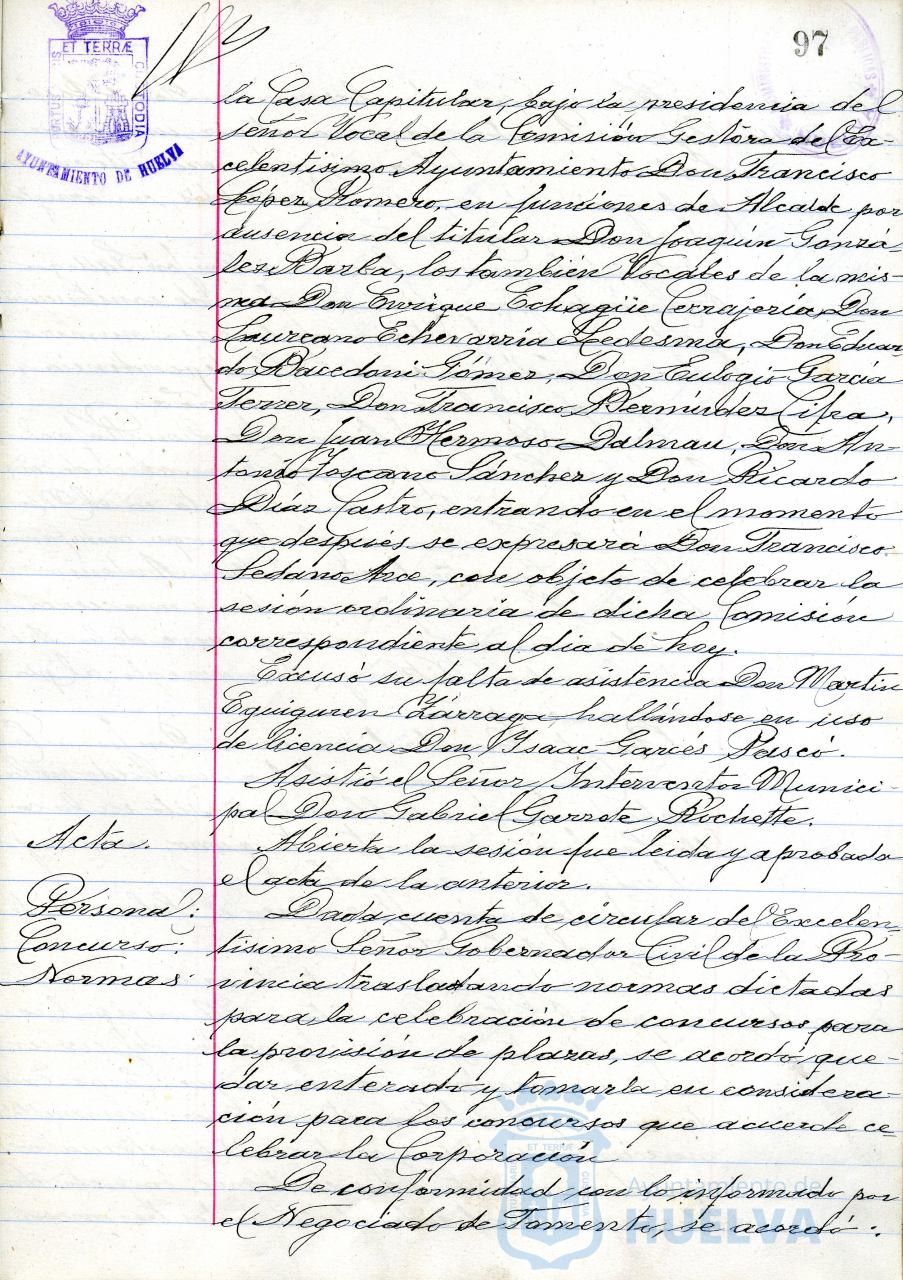 97
ET TERRÆ
CUSTODIA
AYUNTAMIENTO DE HUELVA
la Casa Capitular, bajo la presidencia del
señor Vocal de la Comisión Gestora del Ex-
celentisimo Ayuntamiento Don Francisco
López Romero, en funciones de Alcalde por
ausencia del titular Don Joaquín Gonzá-
lez Barba, los también Vocales de la mis-
ma Don Enrique Echagüe Cerrajería, Don
Laureano Echevarría Ledesma, Don Eduar
do Bacedoni Gómez, Don Eulogio García
Ferrer, Don Francisco Bermúdez Cifra,
Don Juan Hermoso Dalmau, Don An-
tonio Toscano Sánchez y Don Ricardo
Díaz Castro, entrando en el momento
que después se expresará Don Francisco
Sedano Arce, con objeto de celebrar la
sesión ordinaria de dicha Comisión
correspondiente al dia de hoy.
Excusó su falta de asistencia Don Martin
Eguiguren Zárraga hallándose en uso
de licencia Don Ysaac Garcés Pascó.
Asistió el Señor Interventor Munici-
pal Don Gabriel Garrote Rochette.
Acta.
Abierta la sesión fue leida y aprobada
el acta de la anterior.
Personal:
Concurso:
Normas
Dada cuenta de circular del Excelen-
tisimo Señor Gobernador Civil de la Pro-
vincia trasladando normas dictadas
para la celebración de concursos para
la provisión de plazas, se acordó que-
dar enterado y tomarla en considera-
ción para los concursos que acuerde ce-
lebrar la Corporación
De conformidad con lo informado por
el Negociado de Fomento, se acordó:
Ayuntamiento de
HUELVA